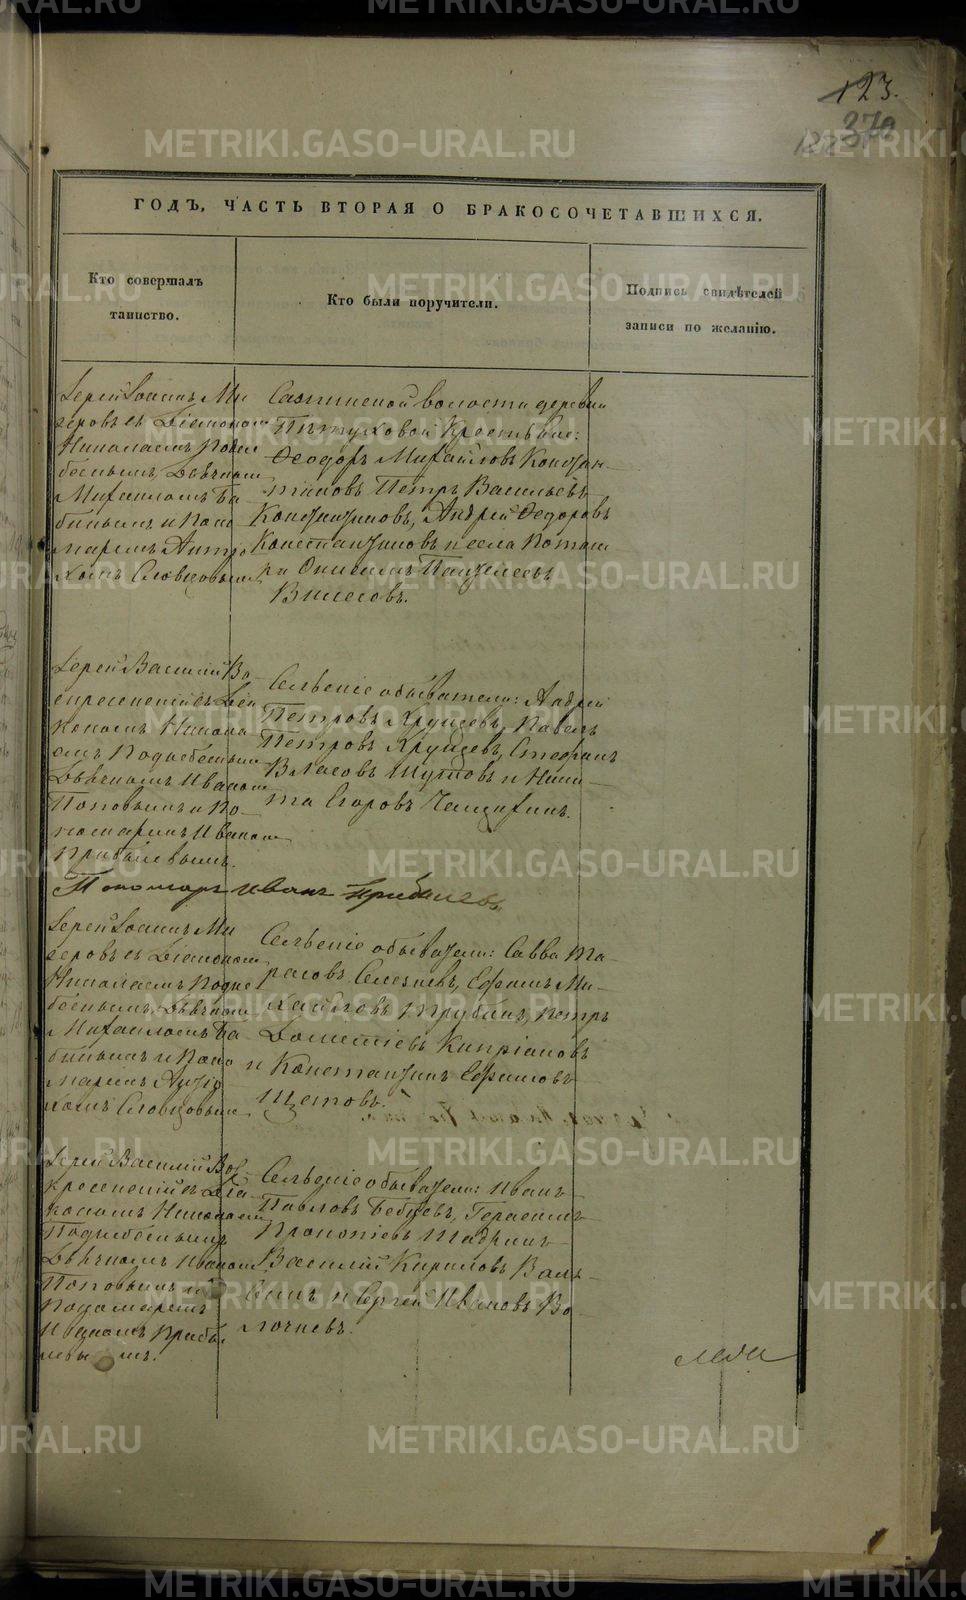 123.
372
ГОДЪ, ЧАСТЬ ВТОРАЯ О БРАКОСОЧЕТАВШИХСЯ.
Кто совершалъ
таинство.
Кто были поручители.
Подпись свидѣтелей
записи по желанію.
Іерей Іоаннъ Ми
геровъ съ Діакономъ
Николаемъ Подне
беснымъ, Дьячкомъ
Михаиломъ Ба
бинымъ и Поно
маремъ
Словцовымъ
Сажинской волости деревни
Пѣтуховой Крестьяне:
Ѳеодоръ Михайловъ Констан-
тиновъ Петръ Васильевъ
Константиновъ, Андрей Ѳедоровъ
Константиновъ и села
Пантелеевъ
Іерей Василій Во
скресенскій съ Діа
кономъ Никола
емъ Поднебеснымъ
Дьячкомъ Иваномъ
Поповымъ и По
номаремъ Иваномъ
Прибылевымъ.
Сельскіе обыватели: Андрей
Петровъ Хрущевъ, Павелъ
Петровъ Хрущевъ, Стефанъ
Власовъ Шутовъ и Ники-
та Егоровъ
Пономарь Иванъ Прибылевъ
Іерей Іоаннъ Ми
геровъ съ Діакономъ
Николаемъ Подне
беснымъ, Дьячкомъ
Михаиломъ Ба
бинымъ и Поно
маремъ
Словцовымъ
Сельскіе обыватели: Савва Та-
расовъ Селезневъ, Ефимъ Ми-
хайловъ Трубинъ, Петръ
Дометіевъ Кипріановъ
и Константинъ Ефимовъ
Щетовъ.
Іерей Василій Вос
кресенскій съ Діа-
кономъ Николаемъ
Поднебеснымъ
Дьячкомъ Иваномъ
Поповымъ и
Пономаремъ
Иваномъ Прибы
левымъ.
Сельскіе обыватели: Иванъ
Павловъ Бебневъ, Герасимъ
Прокопіевъ Шадринъ
Василій Кириловъ
и Сергей Ивановъ Во
лочневъ.
METRIKI.GASO-URAL.RU